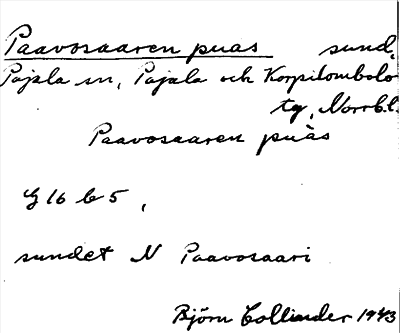 Paavosaaren puas sund,
Pajala sn, Pajala och Korpilombolo
tg, Norrb.l.
Paavosaaren puas
G 16 b 5,
sundet N Paavosaari
Björn Collinder 1943